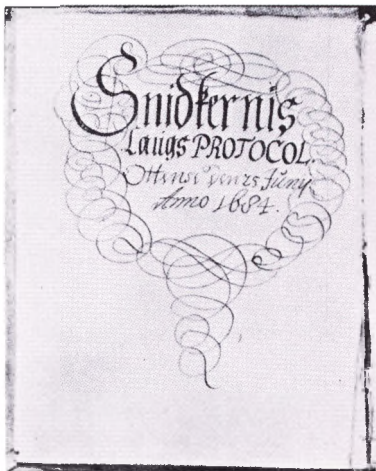 Snidkernis
Laugs PROTOCOL.
Ottense den 25 Juny
Anno 1684.